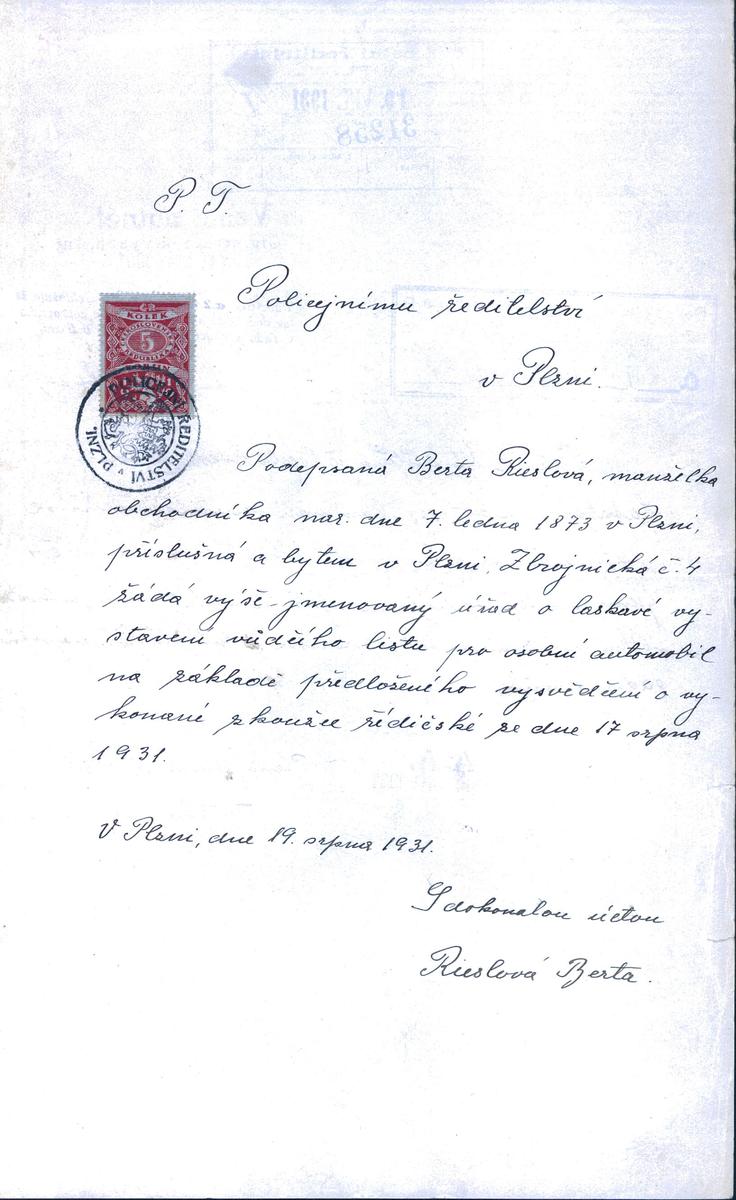 P. T.
Policejnímu ředitelství
v Plzni.
KOLEK
5
POLICEJNÍ ŘEDITELSTVÍ v PLZNI.
Podepsaná Berta Rieslová, manželka
obchodníka nar. dne 7. ledna 1873 v Plzni,
příslušná a bytem v Plzni, Zbrojnická č. 4
žádá výše-jmenovaný úřad o laskavé vy-
stavení vůdčího listu pro osobní automobil
na základě předloženého vysvědčení o vy-
konané zkoušce řidičské ze dne 17 srpna
1931.
V Plzni, dne 19. srpna 1931.
S dokonalou úctou
Rieslová Berta.